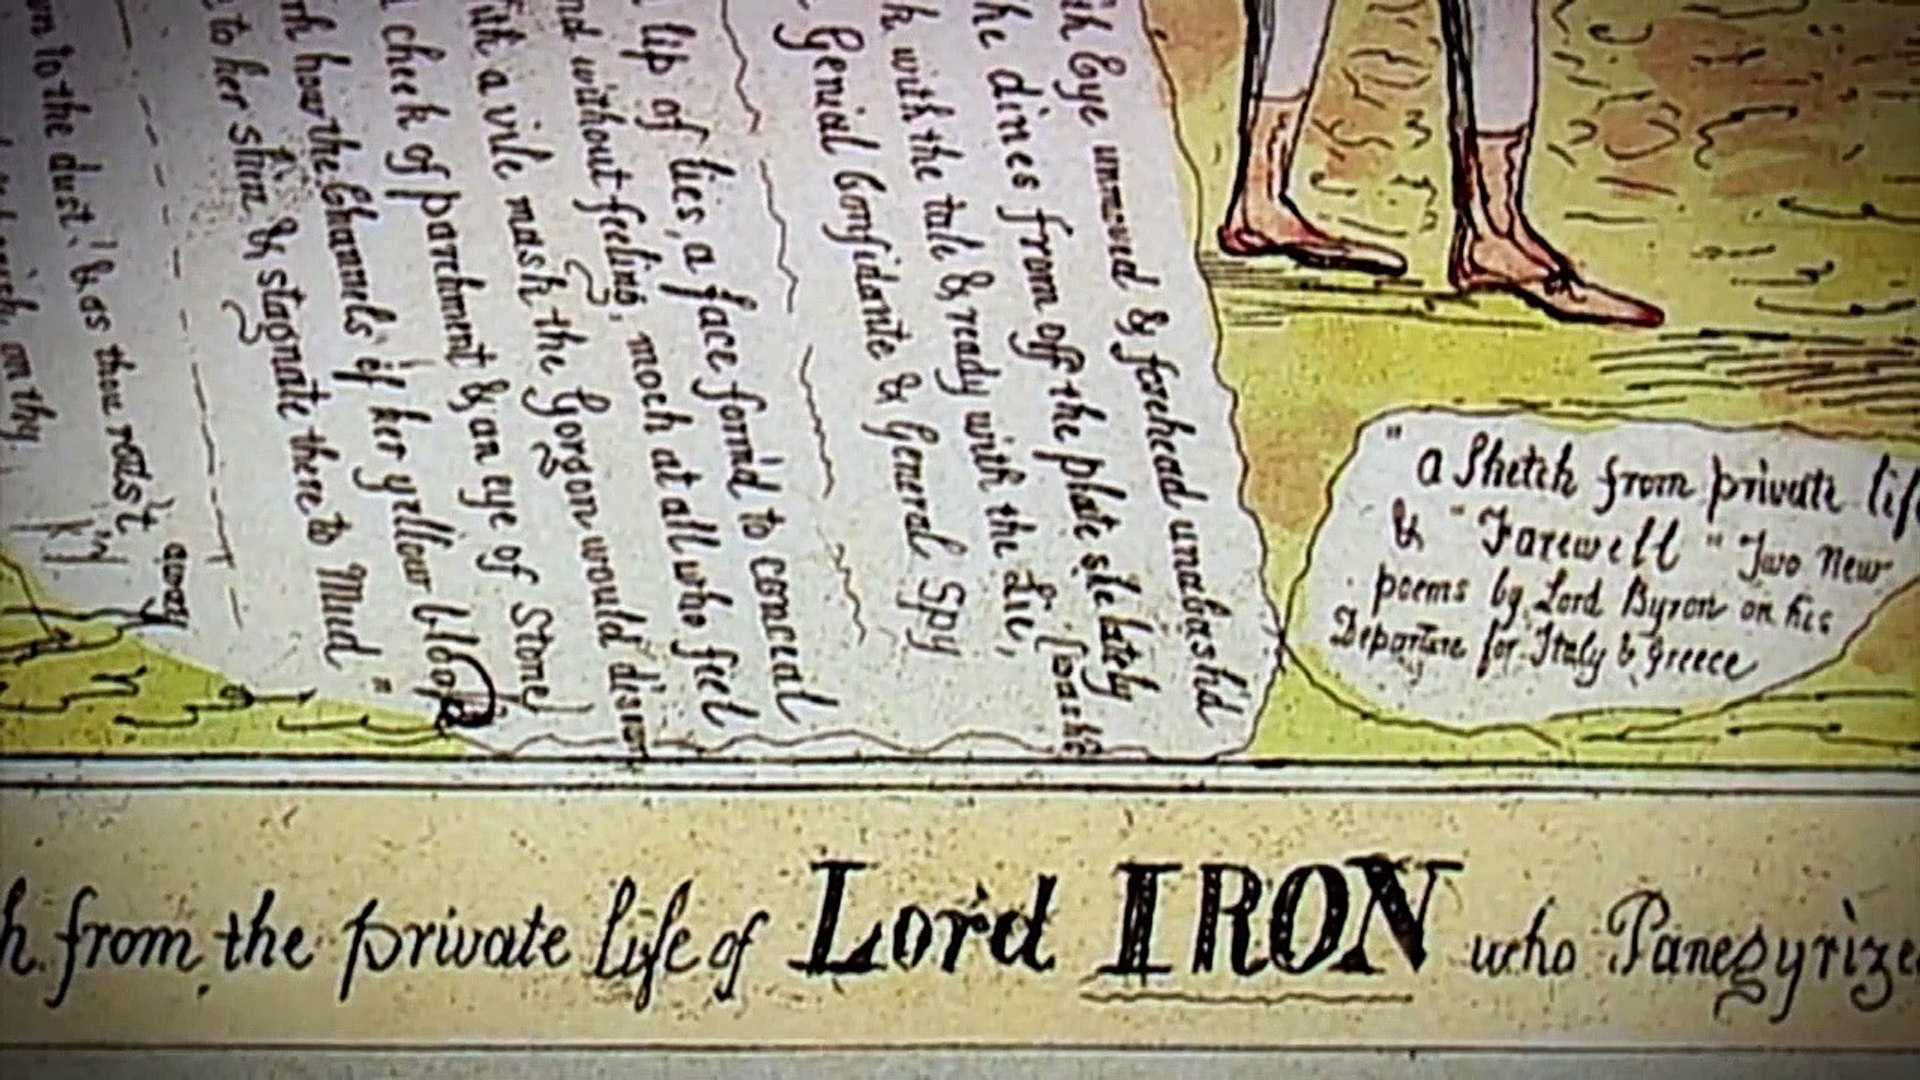 Eye unmoved & forehead unabash'd
he dines from off the plate she lately
with the tale & ready with the Lie,
Genial Confidante & General Spy
lip of lies, a face form'd to conceal
nd without feeling, mock at all who feel
ith a vile mask the Gorgon would disown
cheek of parchment & an eye of Stone
rk how the Channels of her yellow blood
to her skin & stagnate there to Mud"
to the dust! & as thou rott'st away
on thy
"a Sketch from private lif
& "Farewell" Two New
poems by Lord Byron on his
Departure for Italy & Greece
h from the private life of Lord IRON who Panegyrize